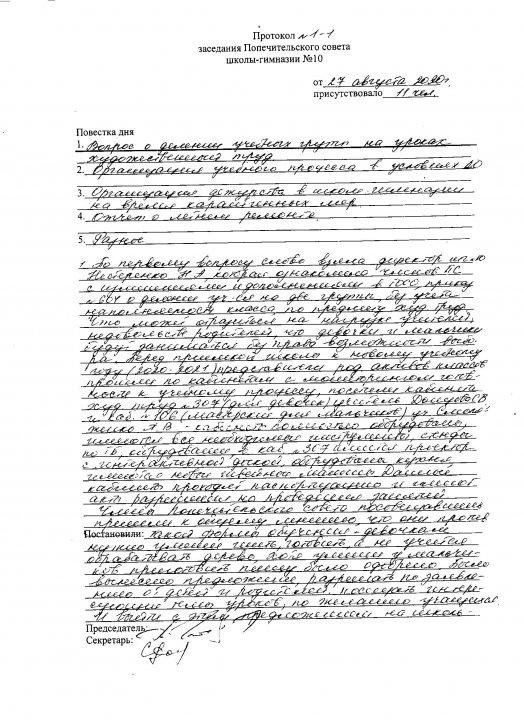 Протокол №1-1
заседания Попечительского совета
школы-гимназии №10
от 27 августа 2020г.
присутствовало 11 чел.
Повестка дня
1. Вопрос о делении учебных групп на уроках
художественный труд
2. Организация учебного процесса в условиях ДО
3. Организация дежурства в школе-гимназии
на время карантинных мер
4. Отчет о летнем ремонте
5. Разное
1. По первому вопросу слово взяла директор
Нестеренко Н.А. которая ознакомила членов ПС
с изменениями и дополнениями в ГОСО, приказ
о делении на две группы, без учета
наполняемости класса, по предмету худ. труд.
Что может отразиться на нагрузке учителей,
недовольстве родителей, что девочки и мальчики
будут заниматься без права возможности выбо-
ра. Перед приемкой школы к новому учебному
году (2020-2021) представители род. активов классов
прошли по кабинетам с мониторингом готов-
ности к учебному процессу, посетили кабинеты
худ. труд №307 (для девочек) учитель
и каб. №106 (мастерские для мальчиков) уч.
А.В - кабинеты полностью оборудованы,
имеются все необходимые инструменты, стенды
по ТБ, оборудование в каб. №307 имеется проектор
с интерактивной доской, оборудована кухня
имеются новые швейные машины. Данные
кабинеты прошли паспортизацию и имеют
акт разрешения на проведение занятий
Члены Попечительского совета посовещавшись
пришли к общему мнению, что они против
Постановили: такой формы обучения - девочкам
нужно умение шить, готовить, а не учиться
обрабатывать дерево, а умение у мальчи-
ков приготовить пиццу было одобрено. Было
вынесено предложение, разрешать по заявле-
нию от детей и родителей посещать интере-
сующие их уроки, по желанию учащихся
И выйти с этим предложением на
Председатель:
Секретарь: